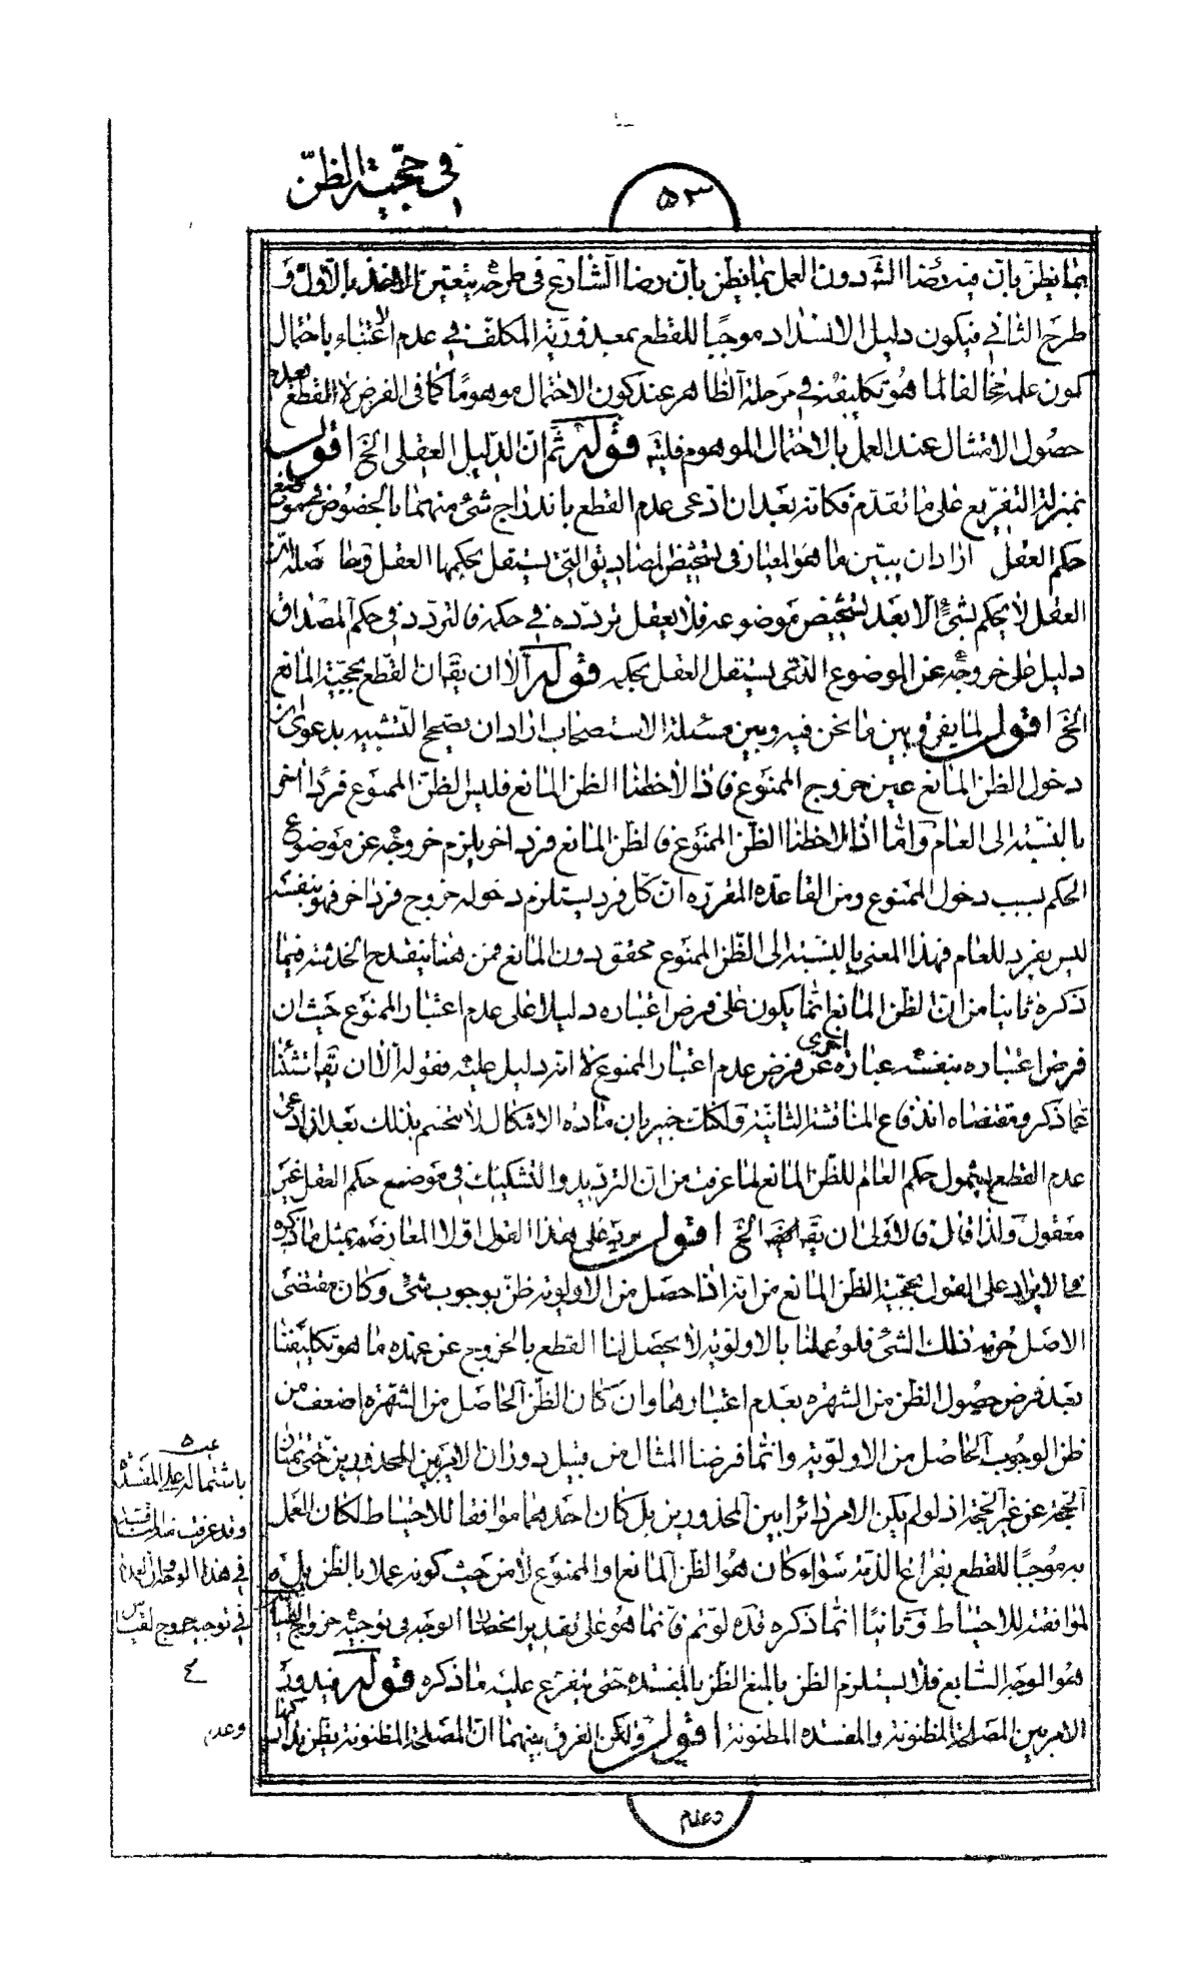 في حجّية الظنّ
٥٣
بما يظنّ بانّ فيه رضا الش دون العمل بما يظن بان رضا الشارع فى طرحه يتعين الاخذ بالاول و
طرح الثاني فيكون دليل الانسداد موجبا للقطع بمعذورية المكلف في عدم الاعتناء باحتمال
كون عمله مخالفا لما هو تكليفه في مرحلة الظاهر عند كون الاحتمال موهوما كما فى الفرض لا القطع بعدم
حصول الامتثال عند العمل بالاحتمال الموهوم فليتا قوله ثم ان الدليل العقلى الخ اقول
بمنزلة التفريع على ما تقدم فكانه بعد ان ادعى عدم القطع باندراج شئ منهما بالخصوص
حكم العقل اراد ان يبين ما هو المعيار فى تشخيص المصاديق التى يستقل بحكمها العقل
العقل لا يحكم بشئ الا بعد تشخيص موضوعه فلا يعقل تردده في حكمه فالتردد في حكم المصداق
دليل على خروجه عن الموضوع الذى يستقل العقل بحكمه قوله الا ان يقال ان القطع بحجية المانع
الخ اقول لما يفرق بين ما نحن فيه وبين مسئلة الاستصحاب اراد ان يصحح التشبيه بدعوى ان
دخول الظن المانع عين خروج الممنوع فاذا لاحظنا الظن المانع فليس الظن الممنوع فردا اخر
بالنسبة الى العام وامّا اذا لاحظنا الظن الممنوع فالظن المانع فرد اخر يلزم خروجه عن موضوع
الحكم بسبب دخول الممنوع ومن القاعدة المقررة ان كل فرد يستلزم دخوله خروج فرد اخر فهو بنفسه
ليس بفرد للعام فهذا المعنى بالنسبة الى الظن الممنوع محقق دون المانع فمن هنا ينقدح الخدشة فيما
ذكره ثانيا من ان الظن المانع انما يكون على فرض اعتباره دليلا على عدم اعتبار الممنوع حيث ان
فرض اعتباره بنفسه عبارة اخرى عن فرض عدم اعتبار الممنوع لا انه دليل عليه فقوله الا ان يقا
عما ذكر ومقتضاه اندفاع المناقشة الثانية ولكنك خبير بان مادة الاشكال لا تنحسم بذلك بعد ان ادعى
عدم القطع بشمول حكم العام للظن المانع لما عرفت من ان الترديد والتشكيك في موضع حكم العقل غير
معقول ولذا قال فالاولى ان يقا الخ اقول يرد على هذا القول اولا المعارضة بمثل ما ذكره
في الايراد على القول بحجية الظن المانع من انه اذا حصل من الاولوية ظن بوجوب شئ وكان مقتضى
الاصل حرمة ذلك الشئ فلو عملنا بالاولوية لا يحصل لنا القطع بالخروج عن عهدة ما هو تكليفنا
بعد فرض حصول الظن من الشهرة بعدم اعتبارها وان كان الظن الحاصل من الشهرة اضعف من
ظن الوجوب الحاصل من الاولوية وانما فرضنا المثال من قبيل دوران الامر بين المحذورين حتى يمتاز
الحجة عن غير الحجة اذ لو لم يكن الامر دائرا بين المحذورين بل كان احدهما موافقا للاحتياط لكان العمل
به موجبا للقطع بفراغ الذمة سواء كان هو الظن المانع او الممنوع لا من حيث كونه عملا بالظن بل
لموافقته للاحتياط وثانيا انما ذكره قده لو تم فانما هو على تقدير انحصار الوجه في توجيه خروج القياس
هو الوجه السابع فلا يستلزم الظن بالمنع الظن بالمفسدة حتى يتفرع عليه ما ذكره قوله فيدور
الامر بين المصلحة المظنونة والمفسدة المظنونة اقول ولكن الفرق بينهما ان المصلحة المظنونة يظن
باشتماله على المفسدة
وقد عرفت
في هذا الوجه
في توجيه خروج القياس
وعدم
وعدم